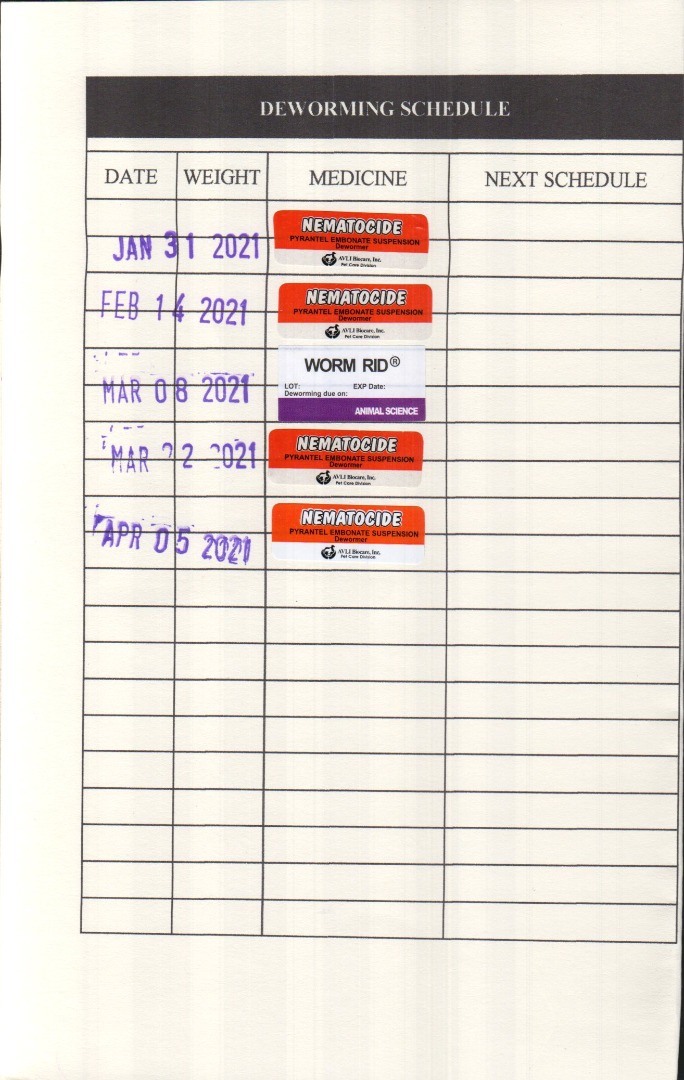 DEWORMING SCHEDULE
DATE WEIGHT MEDICINE NEXT SCHEDULE
JAN 31 2021
NEMATOCIDE
PYRANTEL EMBONATE SUSPENSION
Dewormer
AVLI Biocare, Inc.
Pet Care Division
FEB 14 2021
NEMATOCIDE
PYRANTEL EMBONATE SUSPENSION
Dewormer
AVLI Biocare, Inc.
Pet Care Division
MAR 08 2021
WORM RID®
LOT: EXP Date:
Deworming due on:
ANIMAL SCIENCE
MAR 22 2021
NEMATOCIDE
PYRANTEL EMBONATE SUSPENSION
Dewormer
AVLI Biocare, Inc.
Pet Care Division
APR 05 2021
NEMATOCIDE
PYRANTEL EMBONATE SUSPENSION
Dewormer
AVLI Biocare, Inc.
Pet Care Division